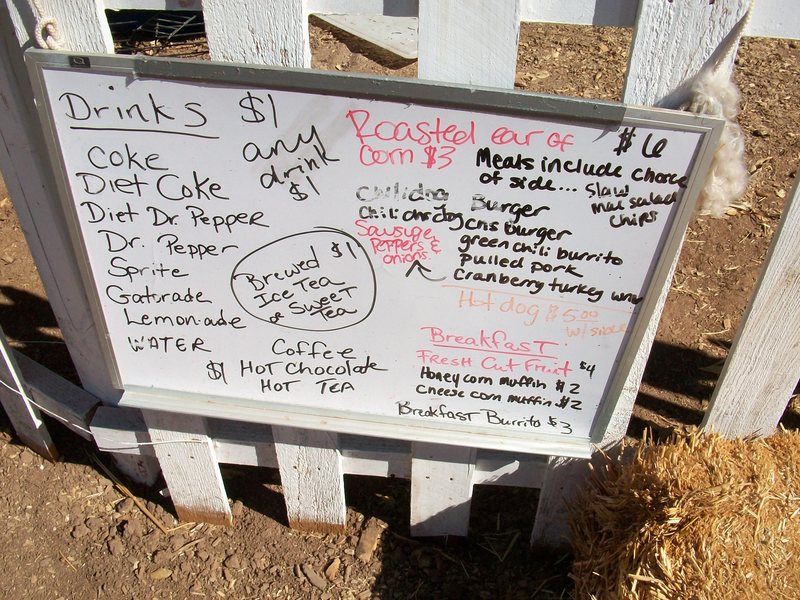 Drinks $1
any
drink
$1
Coke
Diet Coke
Diet Dr. Pepper
Dr. Pepper
Sprite
Gatorade
Lemonade
WATER
Brewed $1
Ice Tea
or Sweet
Tea
Coffee
$1 Hot Chocolate
Hot Tea
Roasted ear of
corn $3
$6
Meats include choice
of side... Slaw
mac salad
chips
Chilidog Burger
Chili chs dog chs burger
Sausage,
Peppers &
onions.
green chili burrito
Pulled pork
Cranberry turkey wrap
Hot dog $5.00
w/side
Breakfast
Fresh Cut Fruit $4
Honey corn muffin $2
Cheese corn muffin $2
Breakfast Burrito $3